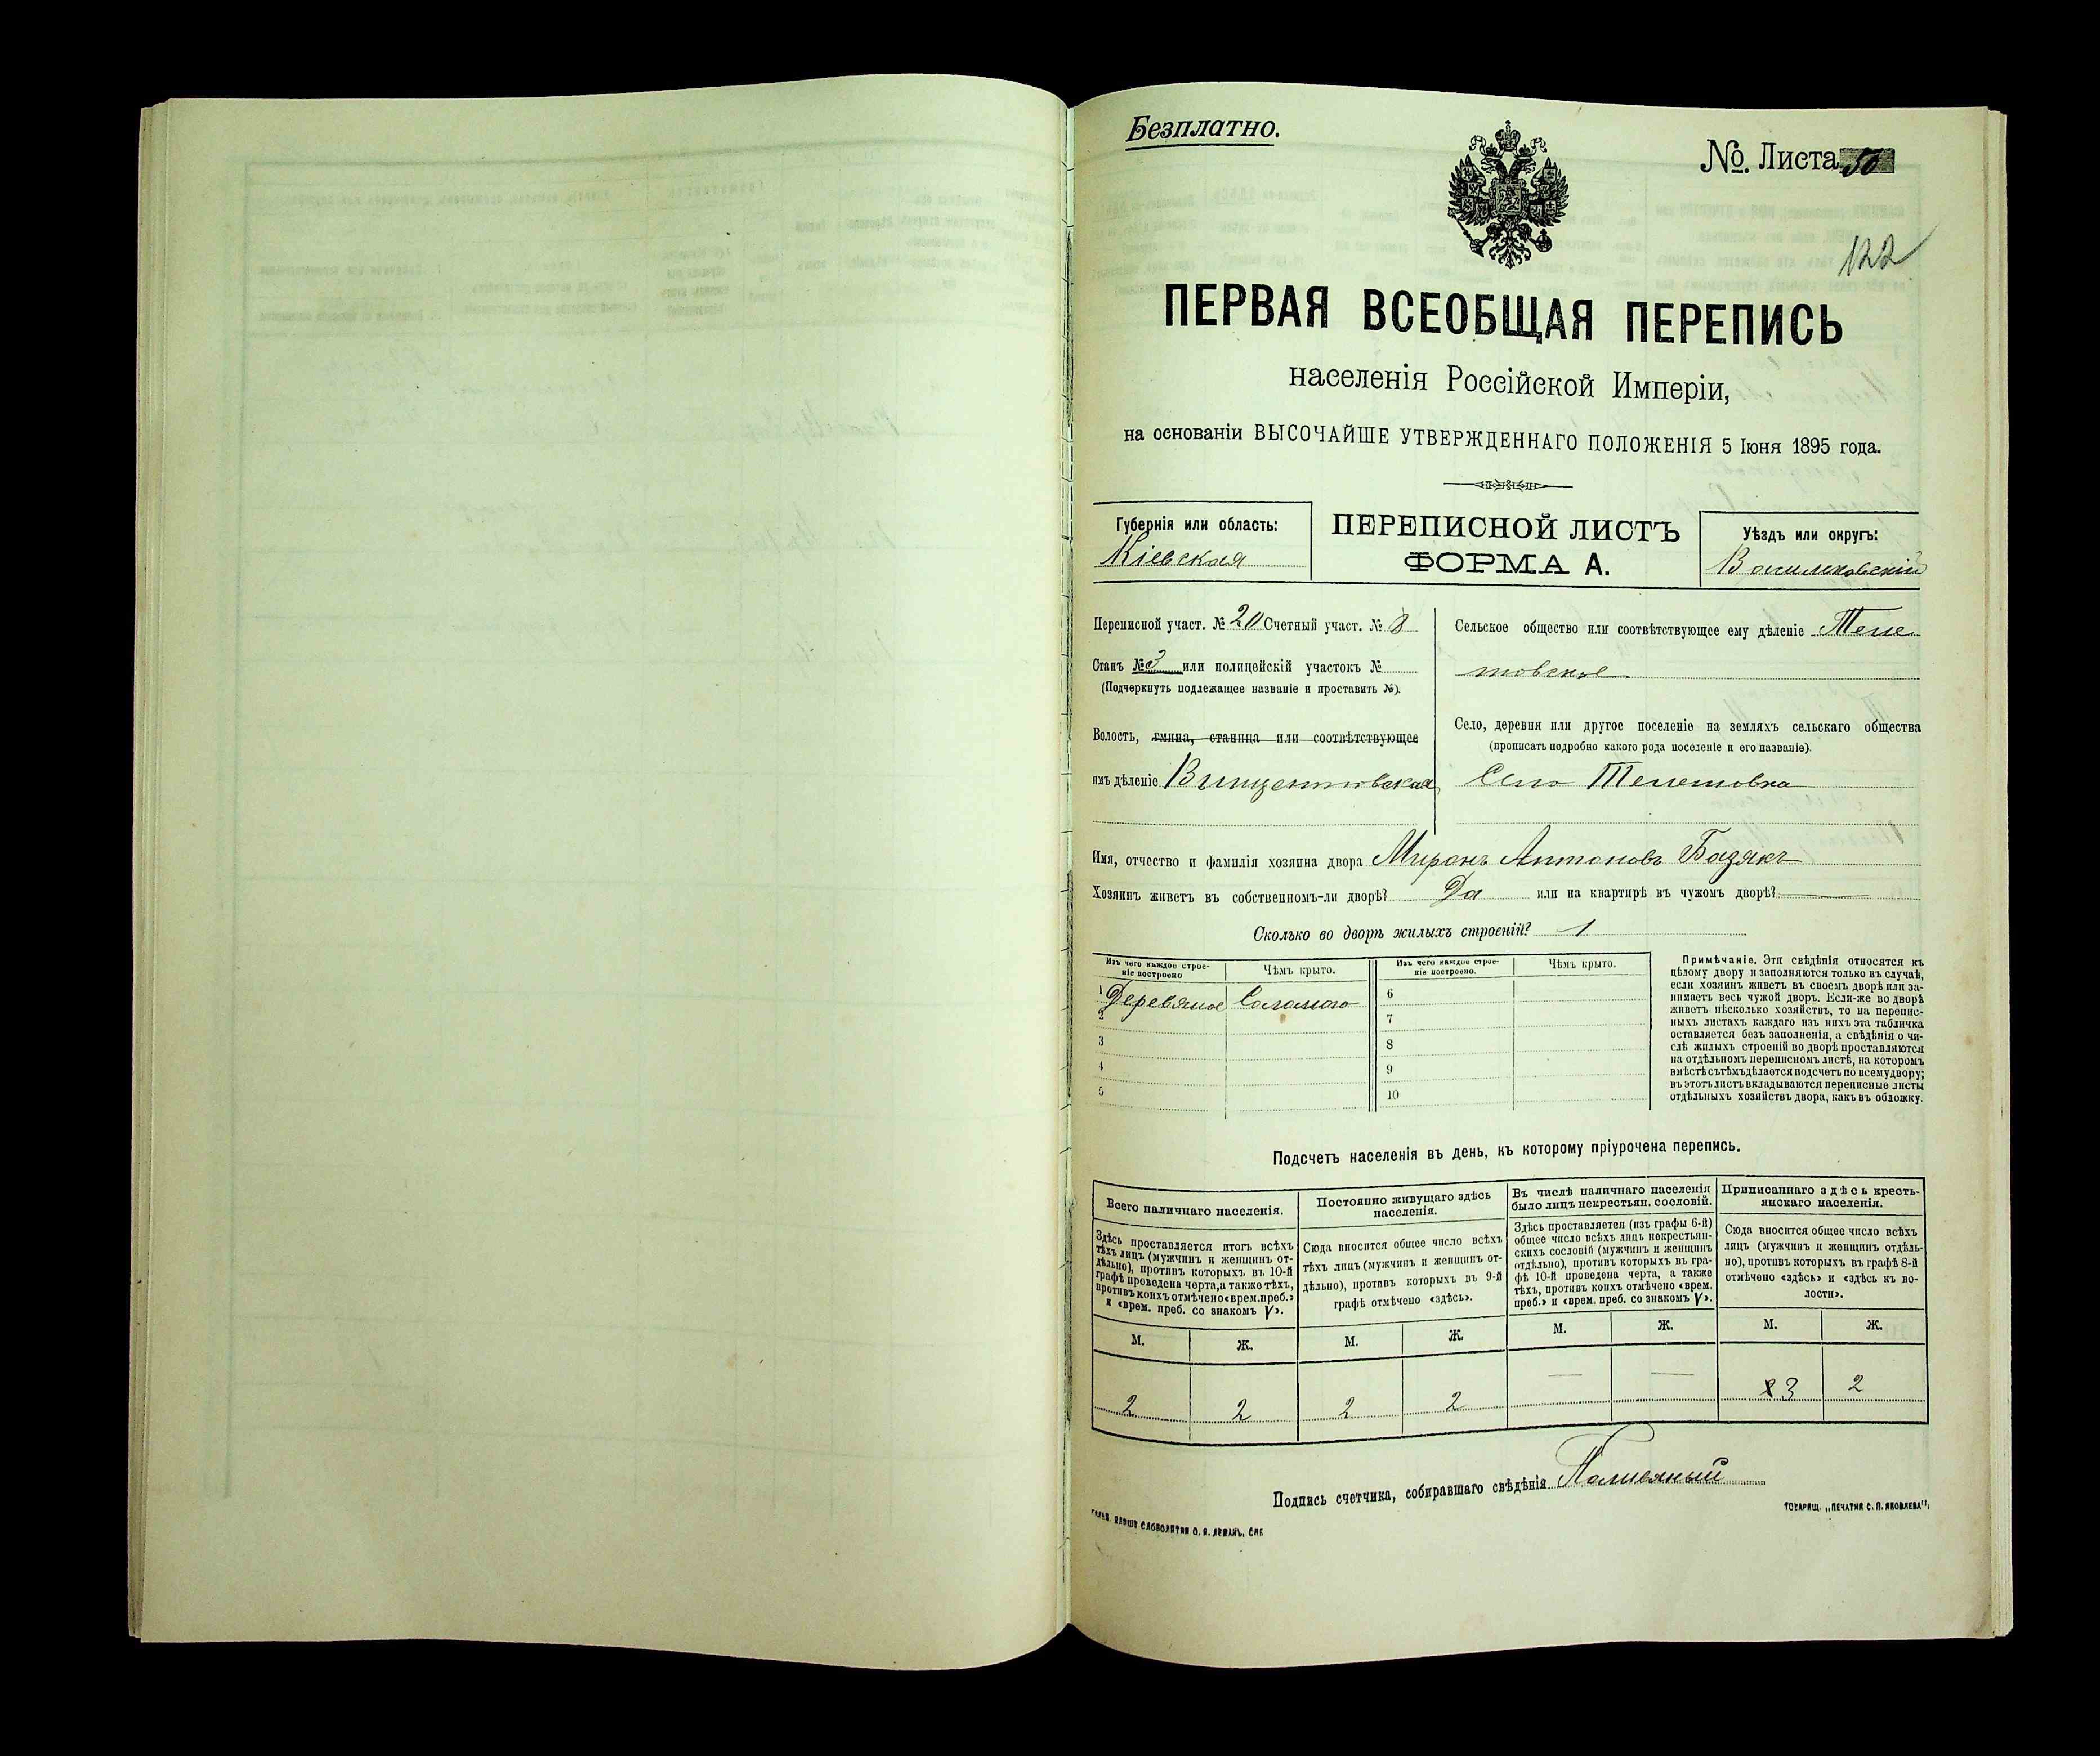 Безплатно.
№. Листа 50
122
ПЕРВАЯ ВСЕОБЩАЯ ПЕРЕПИСЬ
населенія Россійской Имперіи,
на основаніи ВЫСОЧАЙШЕ УТВЕРЖДЕННАГО ПОЛОЖЕНІЯ 5 Іюня 1895 года.
Губернія или область:
Кіевская
ПЕРЕПИСНОЙ ЛИСТЪ
ФОРМА А.
Уѣздъ или округъ:
Васильковскій
Переписной участ. № 20 Счетный участ. № 8
Станъ № 3 или полицейскій участокъ №
(Подчеркнуть подлежащее названіе и проставить №).
Волость, гмина, станица или соотвѣтствующее
имъ дѣленіе Винцентовская
Сельское общество или соотвѣтствующее ему дѣленіе Теле
шовское
Село, деревня или другое поселеніе на земляхъ сельскаго общества
(прописать подробно какого рода поселеніе и его названіе).
Село Телешовка
Имя, отчество и фамилія хозяина двора Миронъ Антоновъ Базякъ
Хозяинъ живетъ въ собственномъ-ли дворѣ? Да или на квартирѣ въ чужомъ дворѣ?
Сколько во дворѣ жилыхъ строеній? 1
Изъ чего каждое строе-
ніе построено
Чѣмъ крыто.
Изъ чего каждое строе-
ніе построено.
Чѣмъ крыто.
1 Деревяное Соломою
2
3
4
5
6
7
8
9
10
Примѣчаніе. Эти свѣдѣнія относятся къ
цѣлому двору и заполняются только въ случаѣ,
если хозяинъ живетъ въ своемъ дворѣ или за-
нимаетъ весь чужой дворъ. Если-же во дворѣ
живетъ нѣсколько хозяйствъ, то на перепис-
ныхъ листахъ каждаго изъ нихъ эта табличка
оставляется безъ заполненія, а свѣдѣнія о чи-
слѣ жилыхъ строеній во дворѣ проставляются
на отдѣльномъ переписномъ листѣ, на которомъ
вмѣстѣ съ тѣмъ дѣлается подсчетъ по всему двору;
въ этотъ листъ вкладываются переписные листы
отдѣльныхъ хозяйствъ двора, какъ въ обложку.
Подсчетъ населенія въ день, къ которому пріурочена перепись.
Всего наличнаго населенія.
Здѣсь проставляется итогъ всѣхъ
тѣхъ лицъ (мужчинъ и женщинъ от-
дѣльно), противъ которыхъ въ 10-й
графѣ проведена черта, а также тѣхъ,
противъ коихъ отмѣчено «врем. преб.»
и «врем. преб. со знакомъ V».
Постоянно живущаго здѣсь
населенія.
Сюда вносится общее число всѣхъ
тѣхъ лицъ (мужчинъ и женщинъ от-
дѣльно), противъ которыхъ въ 9-й
графѣ отмѣчено «здѣсь».
Въ числѣ наличнаго населенія
было лицъ некрестьян. сословій.
Здѣсь проставляется (изъ графы 6-й)
общее число всѣхъ лицъ некрестьян-
скихъ сословій (мужчинъ и женщинъ
отдѣльно), противъ которыхъ въ гра-
фѣ 10-й проведена черта, а также
тѣхъ, противъ коихъ отмѣчено «врем.
преб.» и «врем. преб. со знакомъ V».
Приписаннаго здѣсь кресть-
янскаго населенія.
Сюда вносится общее число всѣхъ
лицъ (мужчинъ и женщинъ отдѣль-
но), противъ которыхъ въ графѣ 8-й
отмѣчено «здѣсь» и «здѣсь къ во-
лости».
М. Ж. М. Ж. М. Ж. М. Ж.
2 2 2 2 — — 3 2
Подпись счетчика, собиравшаго свѣдѣнія
ТОВАРИЩ. „ПЕЧАТНЯ С. П. ЯКОВЛЕВА“.
СЛОВОЛИТНИ О. И. ЛЕМАНЪ, СПБ